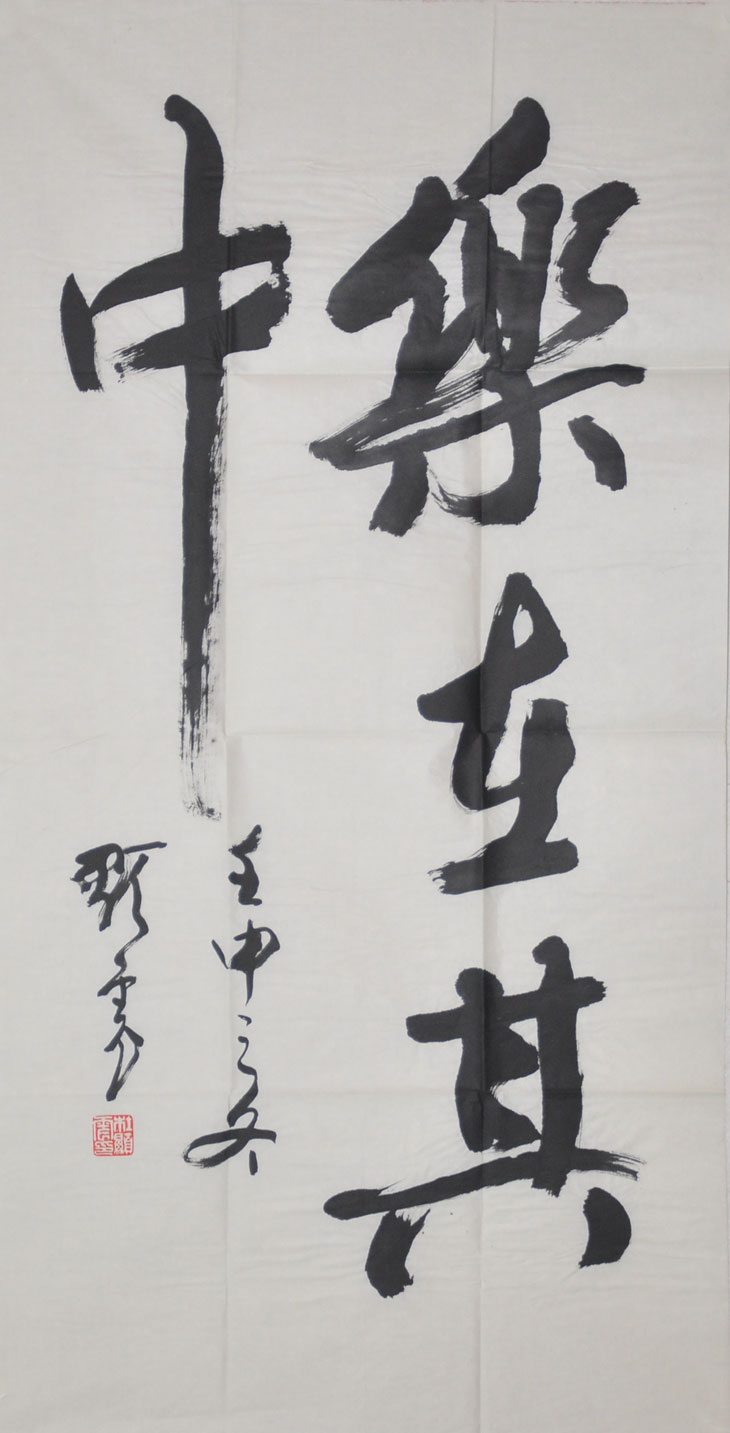 樂在其
中
壬申之冬
顯雲